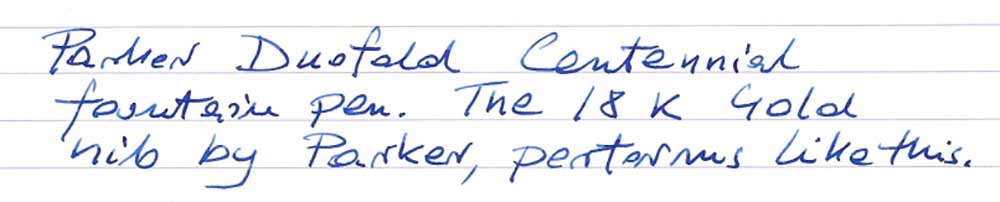 Parker Duofold Centennial
fountain pen. The 18 K Gold
nib by Parker, performs like this.